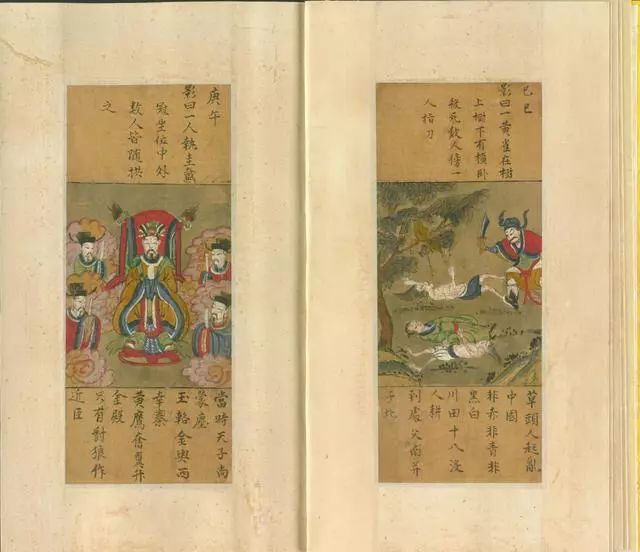 己巳
影曰一黃雀在樹
上樹下有橫卧
殺死數人傍一
人指刀
草頭人起亂
中國
非赤非青非
黑白
川田十八沒
人耕
到處父南并
子北
庚午
影曰一人執圭戴
冠坐位中外
數人皆随拱
之
當時天子尚
蒙塵
玉輅金輿西
幸秦
黃鷹奮翼升
金殿
只有狼作
近臣